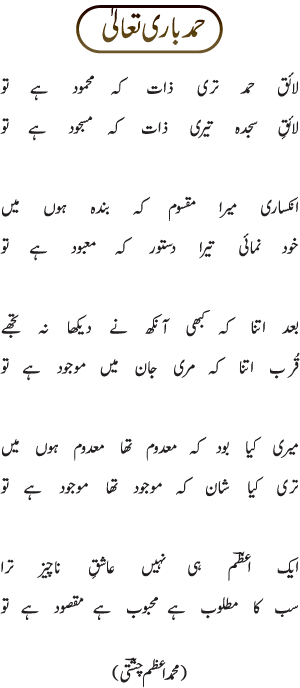 حمد باری تعالیٰ
لائق حمد تری ذات کہ محمود ہے تو
لائقِ سجدہ تیری ذات کہ مسجود ہے تو
انکساری میرا مقسوم کہ بندہ ہوں میں
خود نمائی تیرا دستور کہ معبود ہے تو
بعد اتنا کہ کبھی آنکھ نے دیکھا نہ تجھے
قُرب اتنا کہ مری جان میں موجود ہے تو
میری کیا بود کہ معدوم تھا معدوم ہوں میں
تری کیا شان کہ موجود تھا موجود ہے تو
ایک اعظمؔ ہی نہیں عاشقِ ناچیز ترا
سب کا مطلوب ہے محبوب ہے مقصود ہے تو
(محمد اعظم چشتیؔ)